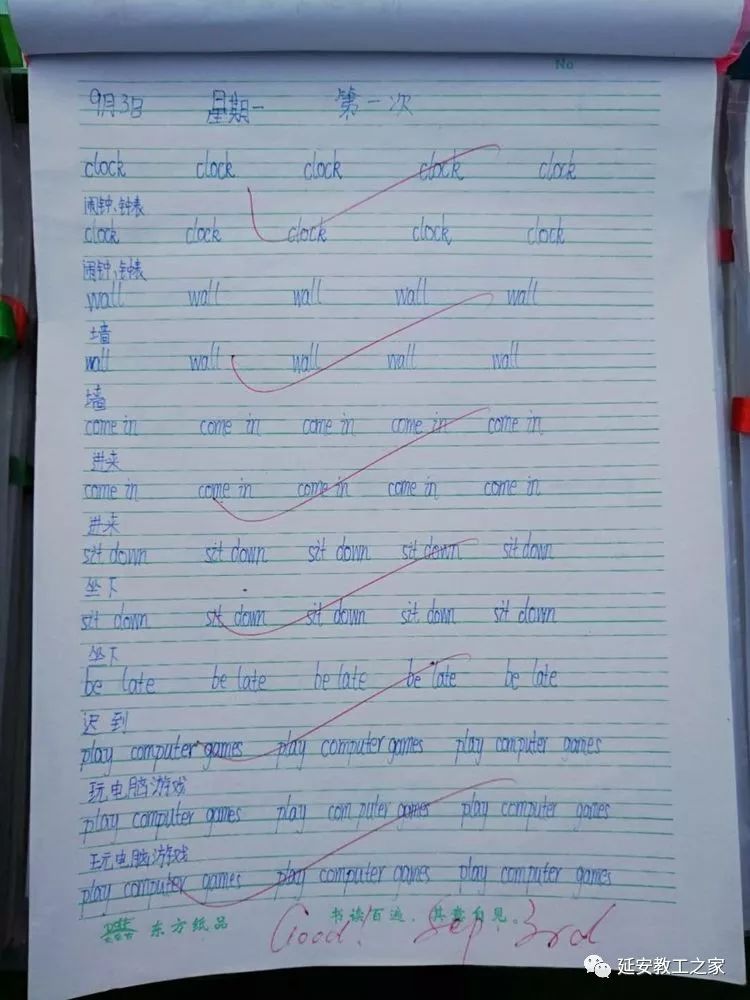 No
9月3日 星期一 第一次
clock clock clock clock clock
闹钟、钟表
clock clock clock clock clock
闹钟、钟表
wall wall wall wall wall
墙
wall wall wall wall wall
墙
come in come in come in come in come in
进来
come in come in come in come in come in
进来
sit down sit down sit down sit down sit down
坐下
sit down sit down sit down sit down sit down
坐下
be late be late be late be late be late
迟到
play computer games play computer games play computer games
玩电脑游戏
play computer games play computer games play computer games
玩电脑游戏
play computer games play computer games play computer games
东方纸品 书读百遍，其意自见。
Good! Sep 3rd
延安教工之家